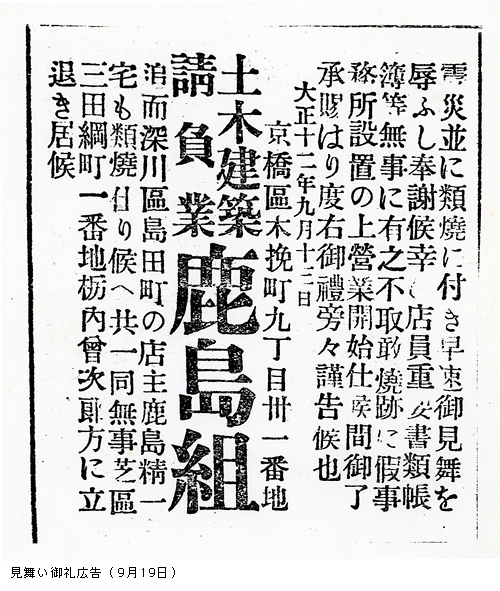 震災並に類燒に付き早速御見舞を
辱ふし奉謝候幸に店員重要書類帳
簿等無事に有之不取敢燒跡に假事
務所設置の上營業開始仕候間御了
承賜はり度右御禮旁々謹告候也
大正十二年九月十三日
京橋區木挽町九丁目卅一番地
土木建築
請負業
鹿島組
追而深川區島田町の店主鹿島精一
宅も類燒仕り候へ共一同無事芝區
三田綱町一番地栃內曾次郎方に立
退き居候
見舞い御礼広告（9月19日）